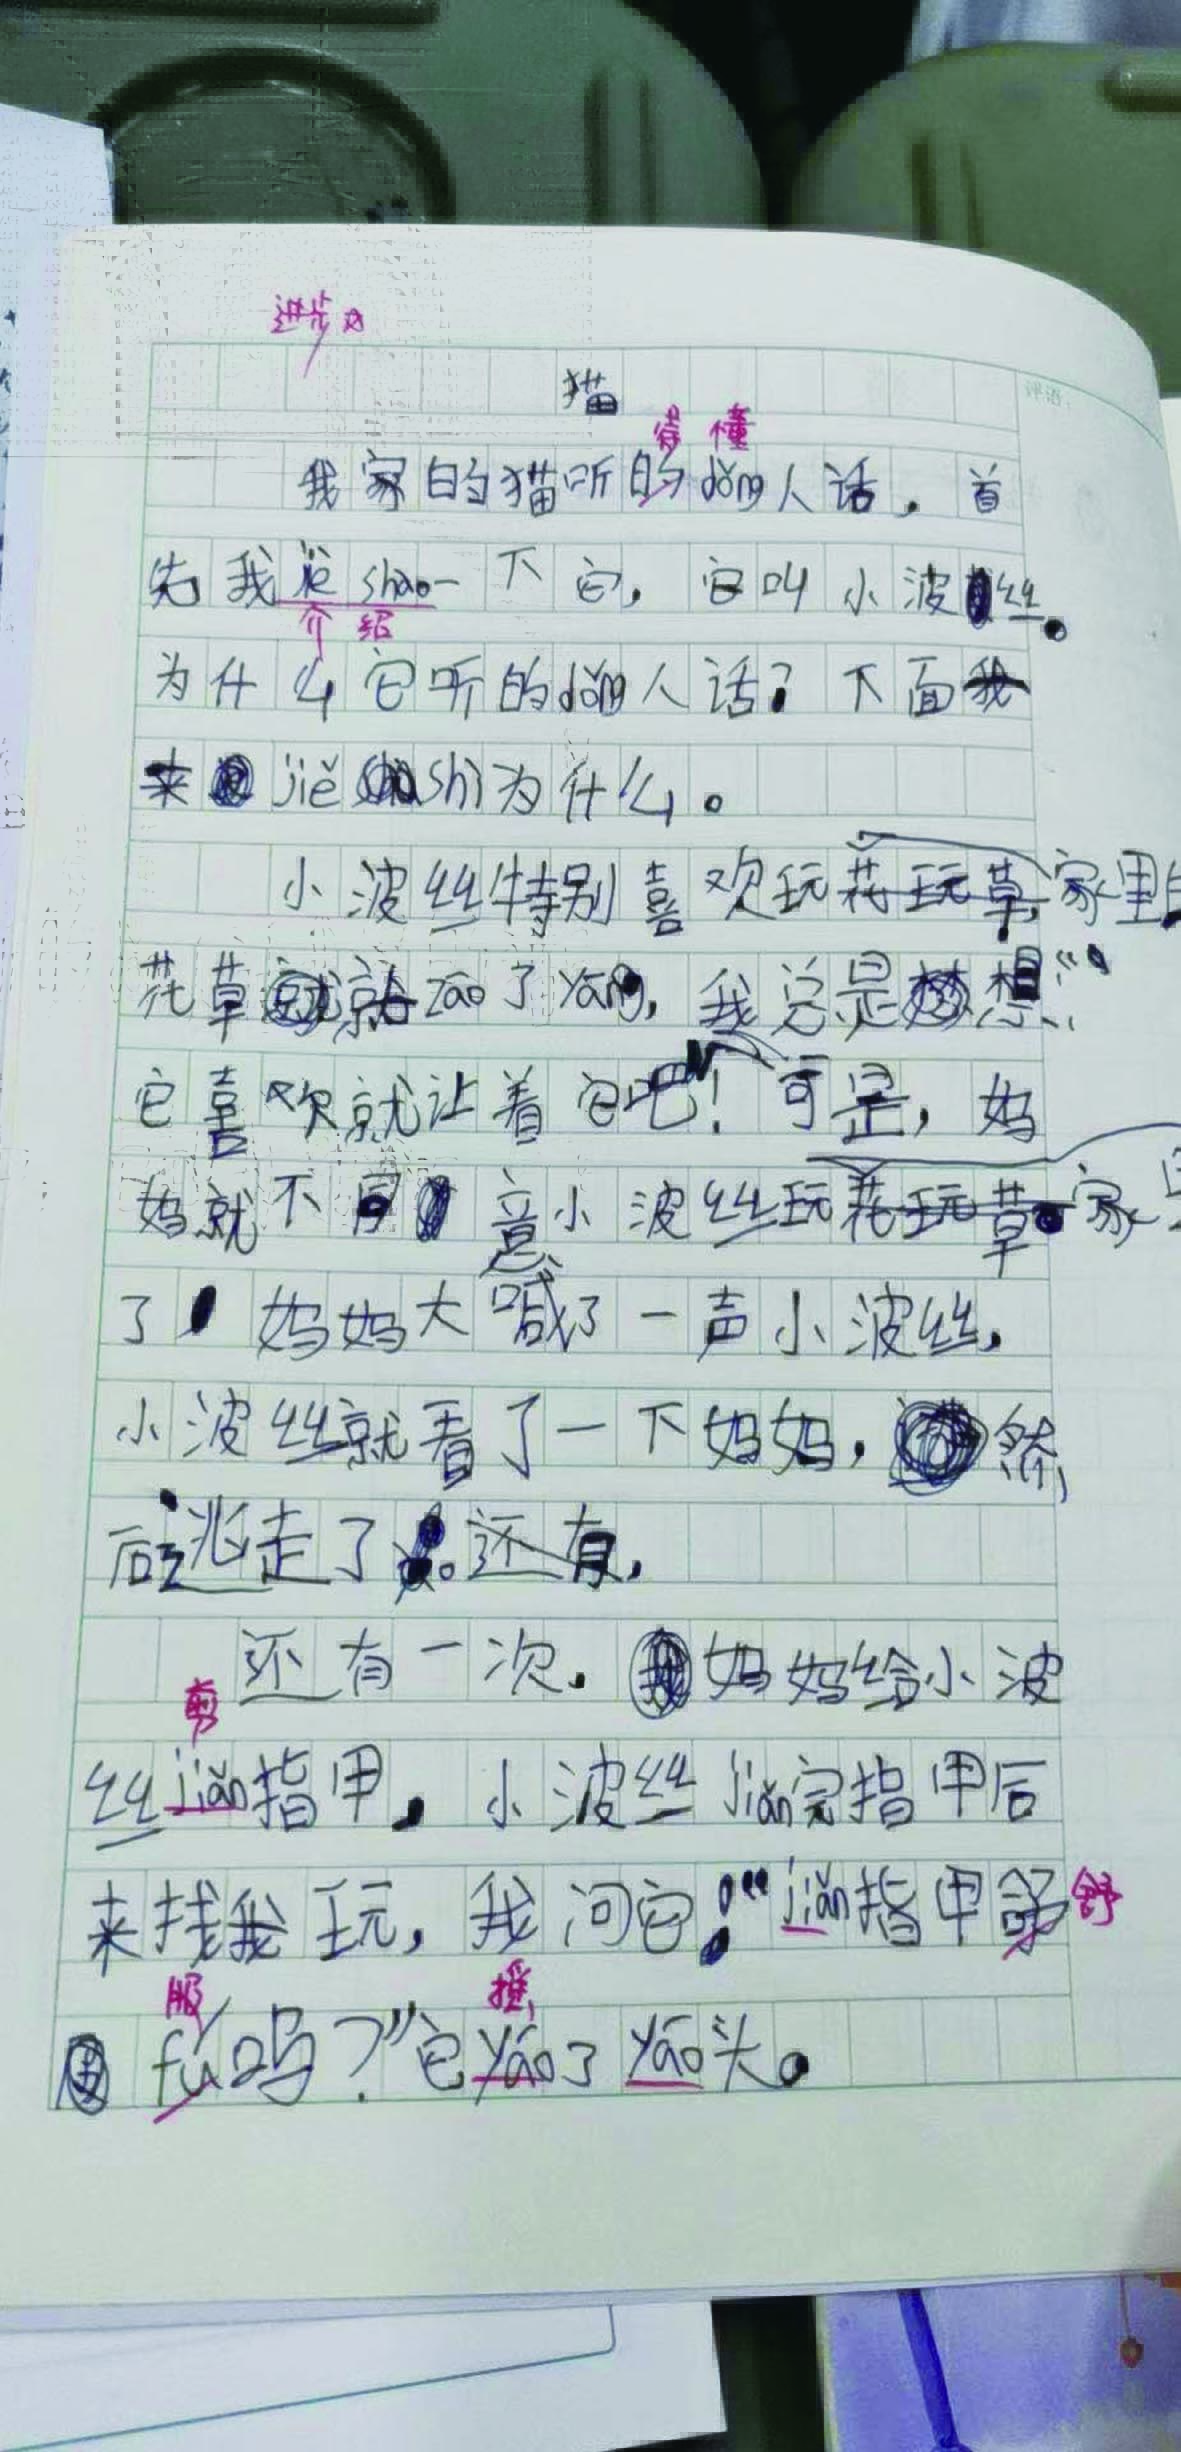 进步大
猫
得 懂
我家的猫听的dǒng人话，首
先我jiè shao一下它，它叫小波丝。
介 绍
为什么它听的dǒng人话？下面我
来jiě shì为什么。
小波丝特别喜欢玩花玩草，家里
花草就zāo了yāng，我总是想：“
它喜欢就让着它吧！”可是，妈
妈就不同意小波丝玩花玩草。家里
了 妈妈大喊了一声小波丝，
小波丝就看了一下妈妈，然
后逃走了。还有，
还有一次，妈妈给小波
剪
丝jiǎn指甲，小波丝jiǎn完指甲后
来找我玩，我问它：“jiǎn指甲舒
舒
服 摇
fú吗？”它yáo了yáo头。